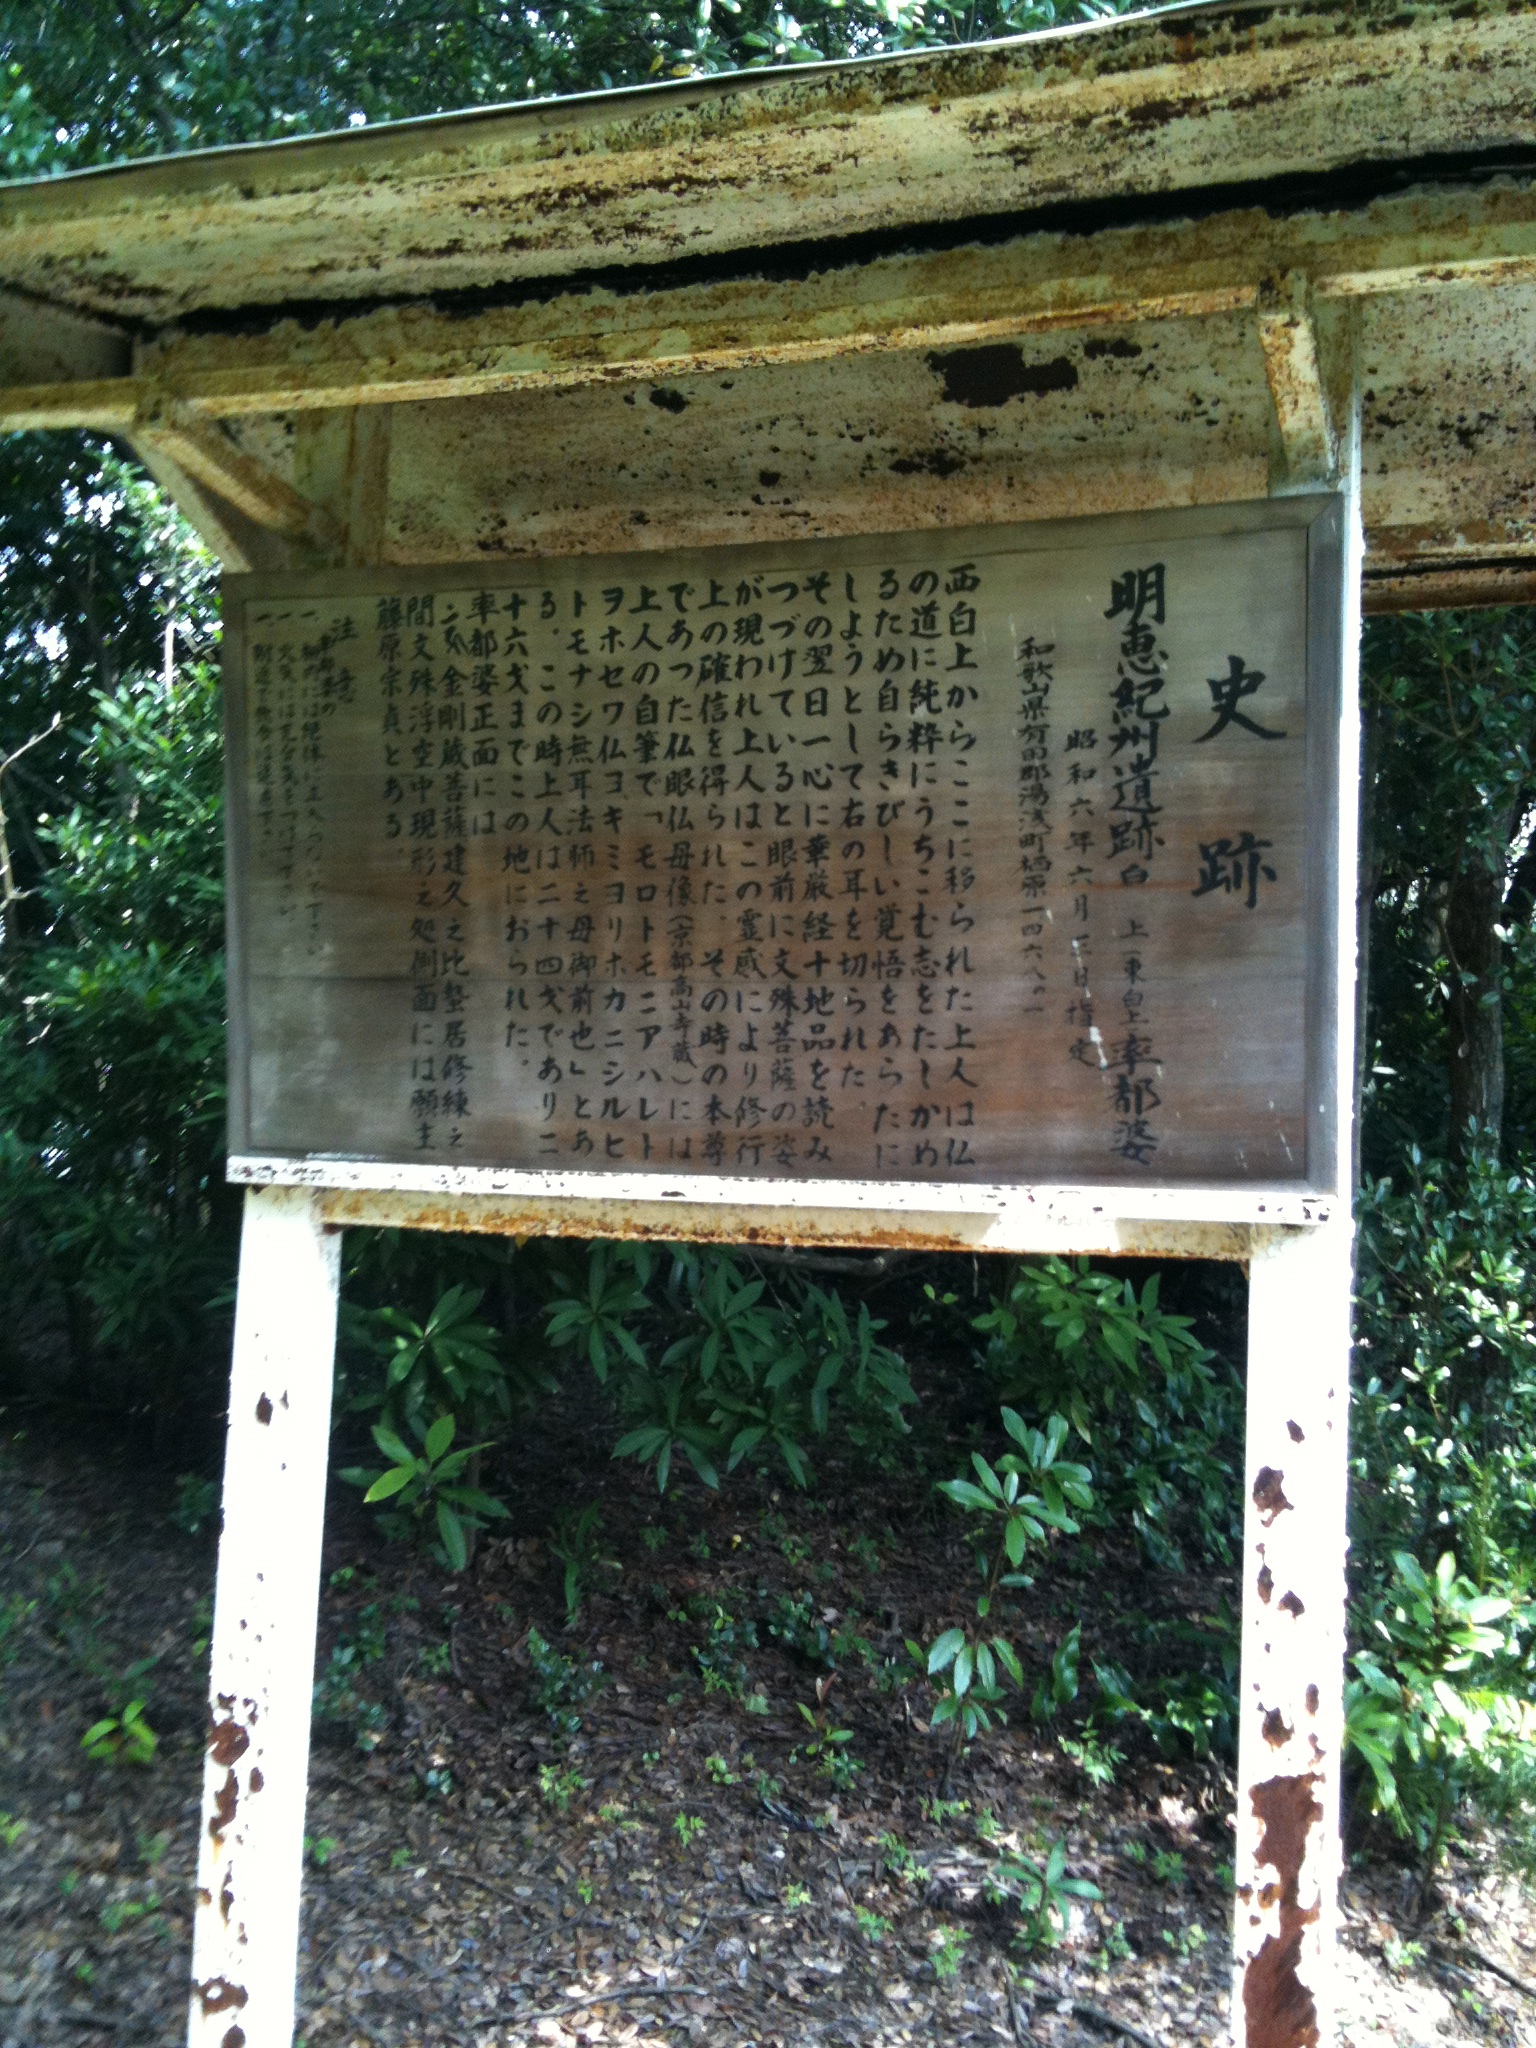 史跡
明恵紀州遺跡白上(東白上)率都婆
昭和六年六月三日指定
和歌山県有田郡湯浅町栖原一四六八の一
西白上からここに移られた上人は仏
の道に純粋にうちこむ志をたしかめ
るため自らきびしい覚悟をあらたに
しようとして右の耳を切られた。
その翌日一心に華厳経十地品を読み
つづけていると眼前に文殊菩薩の姿
が現われ上人はこの霊感により修行
上の確信を得られた。その時の本尊
であつた仏眼仏母像(京都高山寺蔵)には
上人の自筆で「モロトモニアハレト
ヲホセワ仏ヨキミヨリホカニシルヒ
トモナシ無耳法師之母御前也」とあ
る。この時上人は二十四才であり二
十六才までこの地におられた。
率都婆正面には
金剛蔵菩薩建久之比蟄居修練之
間文殊浮空中現形之処側面には願主
藤原宗貞とある。
注意
一、
一、火気には充分気をつけて下さい
一、